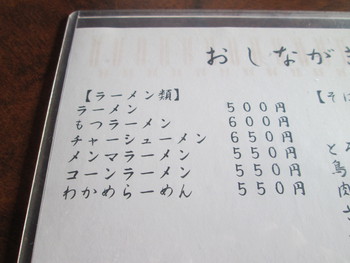 おしながき
【ラーメン類】
ラーメン 500円
もつラーメン 600円
チャーシューメン 650円
メンマラーメン 550円
コーンラーメン 550円
わかめらーめん 550円
【そば
と
鳥
肉